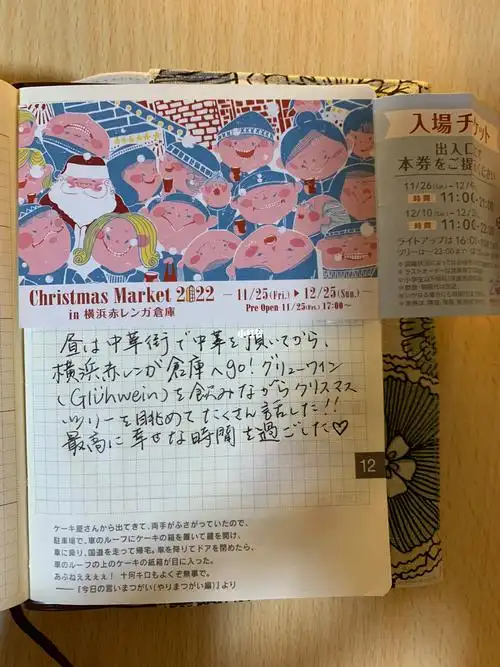 Christmas Market 2022
in 横浜赤レンガ倉庫
11/25(Fri.) ▶ 12/25(Sun.)
Pre Open 11/25(Fri.) 17:00〜
入場チケット
出入口
本券をご提
11/26(Sat.)
時間 11:00
12/10(Sat.)
時間 11:00
ライトアップは16:0
昼は中華街で中華を頂いてから、
横浜赤レンガ倉庫へgo!グリューワイン
(Glühwein)を飲みながらクリスマス
ツリーを眺めてたくさん話した!!
最高に幸せな時間を過ごした♡
12
ケーキ屋さんから出てきて、両手がふさがっていたので、
駐車場で、車のルーフにケーキの箱を置いて鍵を開け、
車に乗り、国道を走って帰宅。車を降りてドアを閉めたら、
車のルーフの上のケーキの紙箱が目に入った。
あぶねえぇぇぇ! 十何キロもよくぞ無事で。
——『今日の言いまつがい(やりまつがい編)』より